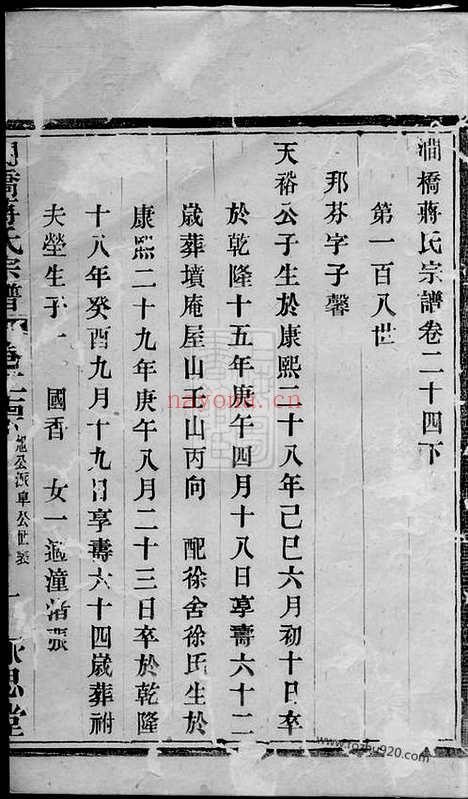 澗橋蔣氏宗譜卷二十四下
第一百八世
邦芬字子馨
天裕公子生於康熙二十八年己巳六月初十日卒
於乾隆十五年庚午四月十八日享壽六十二
歲葬墳庵屋山壬山丙向 配徐舍徐氏生於
康熙二十九年庚午八月二十三日卒於乾隆
十八年癸酉九月十九日享壽六十四歲葬祔
夫塋生子一 國香 女一適潼渚張
橋蔣氏宗譜
公派阜公世表
思堂
nayona.cn
www.fozhu920.com